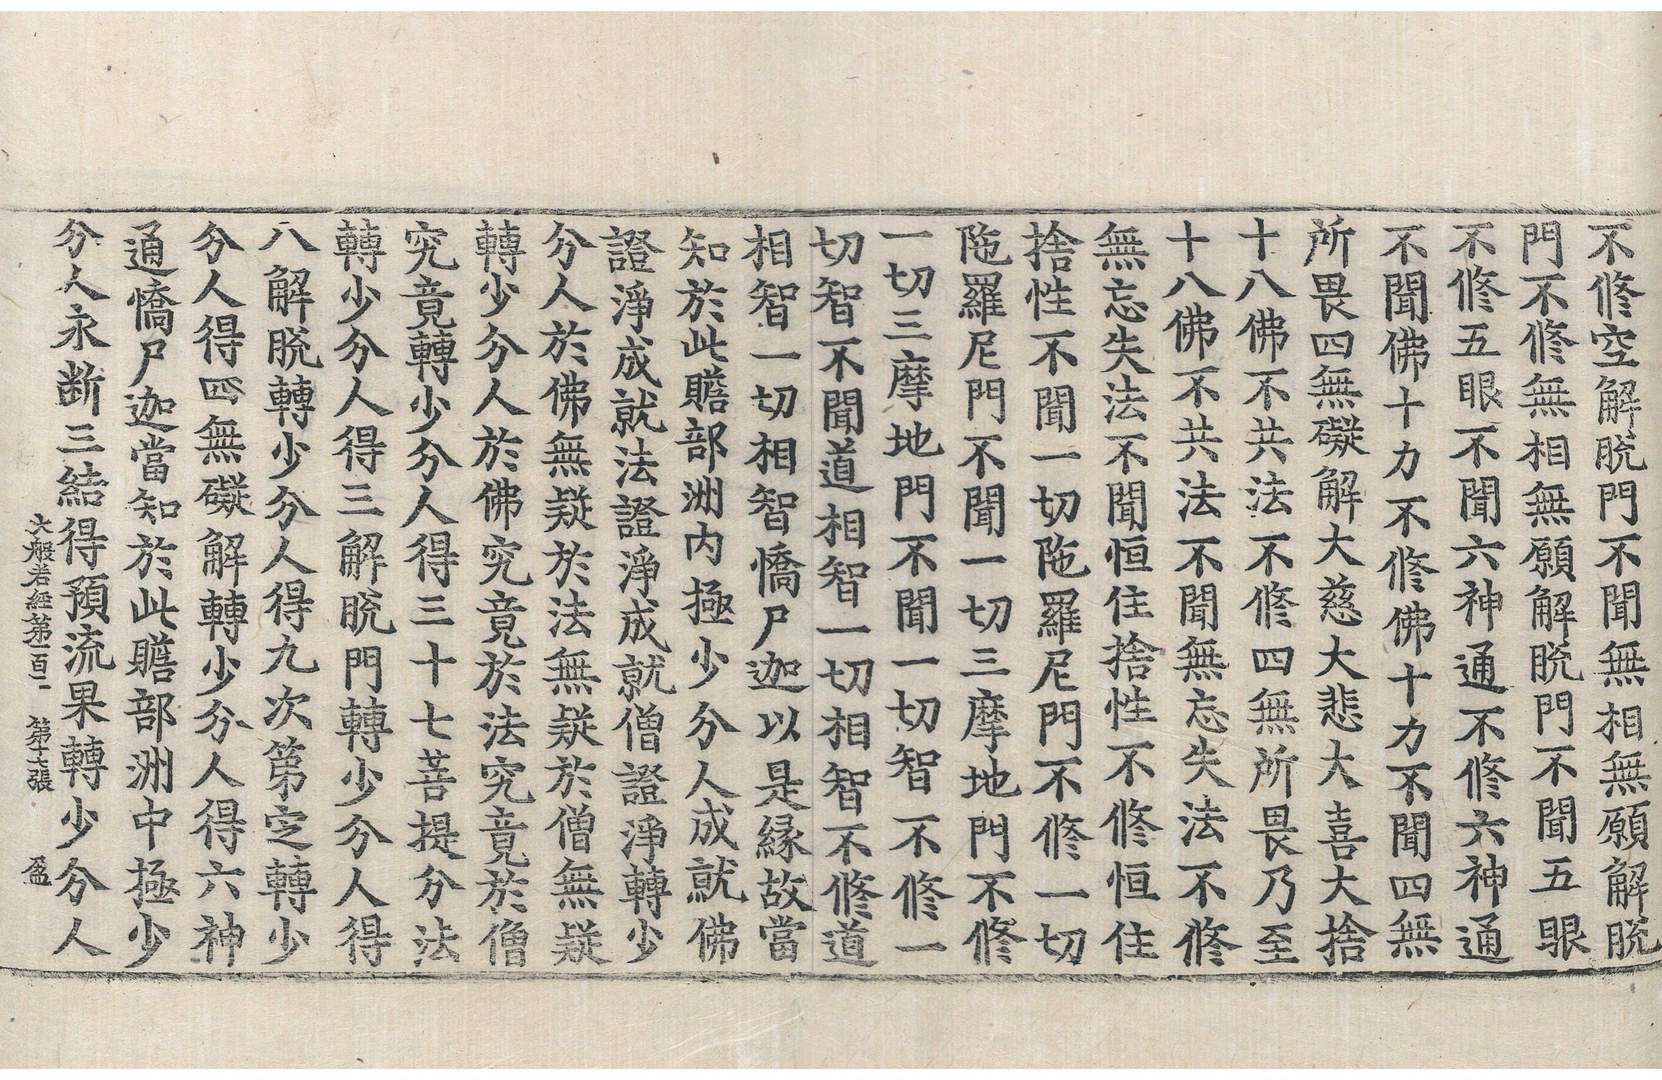 不修空解脫門不聞無相無願解脫
門不修無相無願解脫門不聞五眼
不修五眼不聞六神通不修六神通
不聞佛十力不修佛十力不聞四無
所畏四無礙解大慈大悲大喜大捨
十八佛不共法不修四無所畏乃至
十八佛不共法不聞無忘失法不修
無忘失法不聞恒住捨性不修恒住
捨性不聞一切陁羅尼門不修一切
陁羅尼門不聞一切三摩地門不修
一切三摩地門不聞一切智不修一
切智不聞道相智一切相智不修道
相智一切相智憍尸迦以是緣故當
知於此贍部洲內極少分人成就佛
證淨成就法證淨成就僧證淨轉少
分人於佛無疑於法無疑於僧無疑
轉少分人於佛究竟於法究竟於僧
究竟轉少分人得三十七菩提分法
轉少分人得三解脫門轉少分人得
八解脫轉少分人得九次第定轉少
分人得四無礙解轉少分人得六神
通憍尸迦當知於此贍部洲中極少
分人永斷三結得預流果轉少分人
大般若經第一百二 第十七張 盈